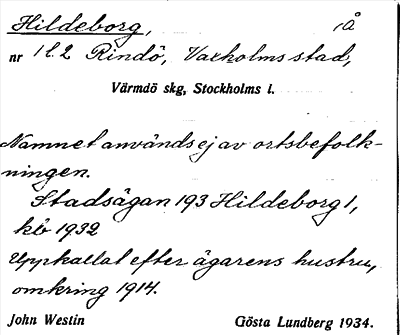 Hildeborg, iÅ
nr 1 l. 2 Rindö, Vaxholms stad,
Värmdö skg, Stockholms l.
Namnet används ej av ortsbefolk-
ningen.
Stadsägan 193 Hildeborg 1,
kb 1932
Uppkallat efter ägarens hustru,
omkring 1914.
John Westin Gösta Lundberg 1934.